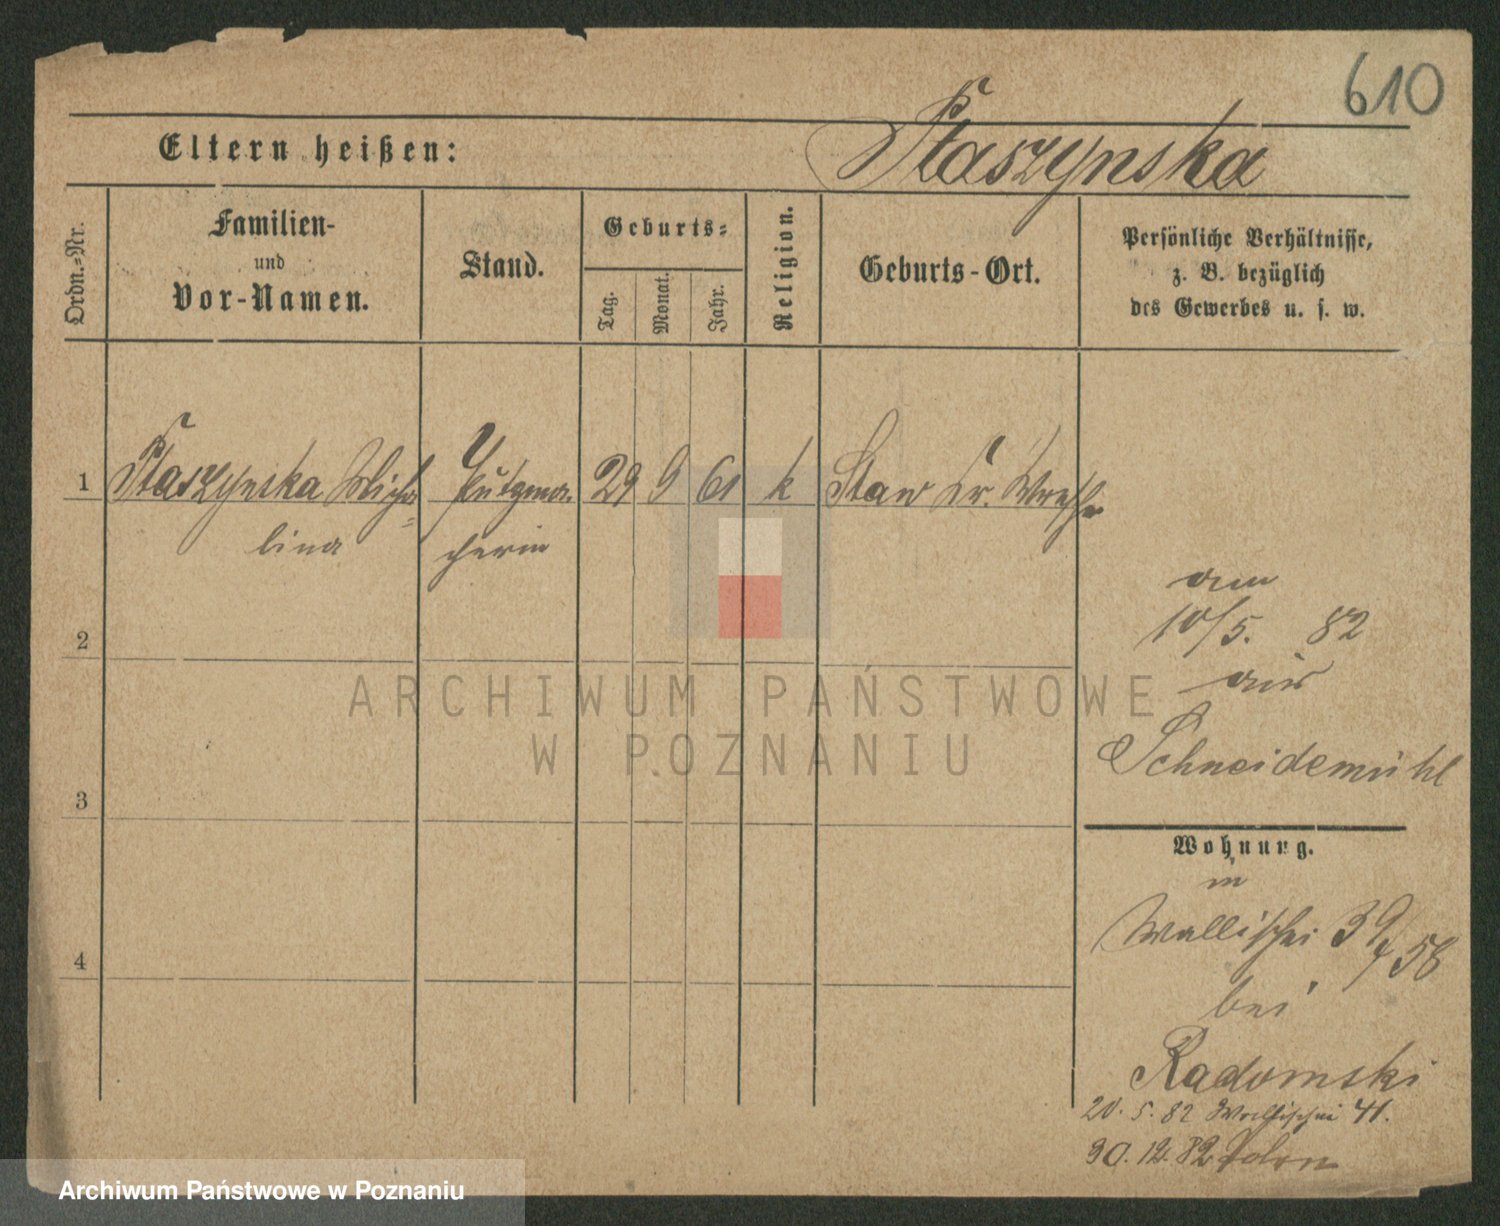 610
Ptaszynska
Eltern heißen:
Ordn.-Nr.
Familien-
und
Vor-Namen.
Stand.
Geburts-
Tag.
Monat.
Jahr.
Religion.
Geburts-Ort.
Persönliche Verhältnisse,
z. B. bezüglich
des Gewerbes u. s. w.
1 Ptaszynska Micha= Putzma- 29 9 61 k Staw Kr. Wresch
lina cherin
am
10/5. 82
aus
Schneidemühl
2
3
4
Wohnung.
in
Wallischei 39/58
bei
Radomski
20. 5. 82 Wallischei 41.
30. 12. 82
ARCHIWUM PAŃSTWOWE
W POZNANIU
Archiwum Państwowe w Poznaniu